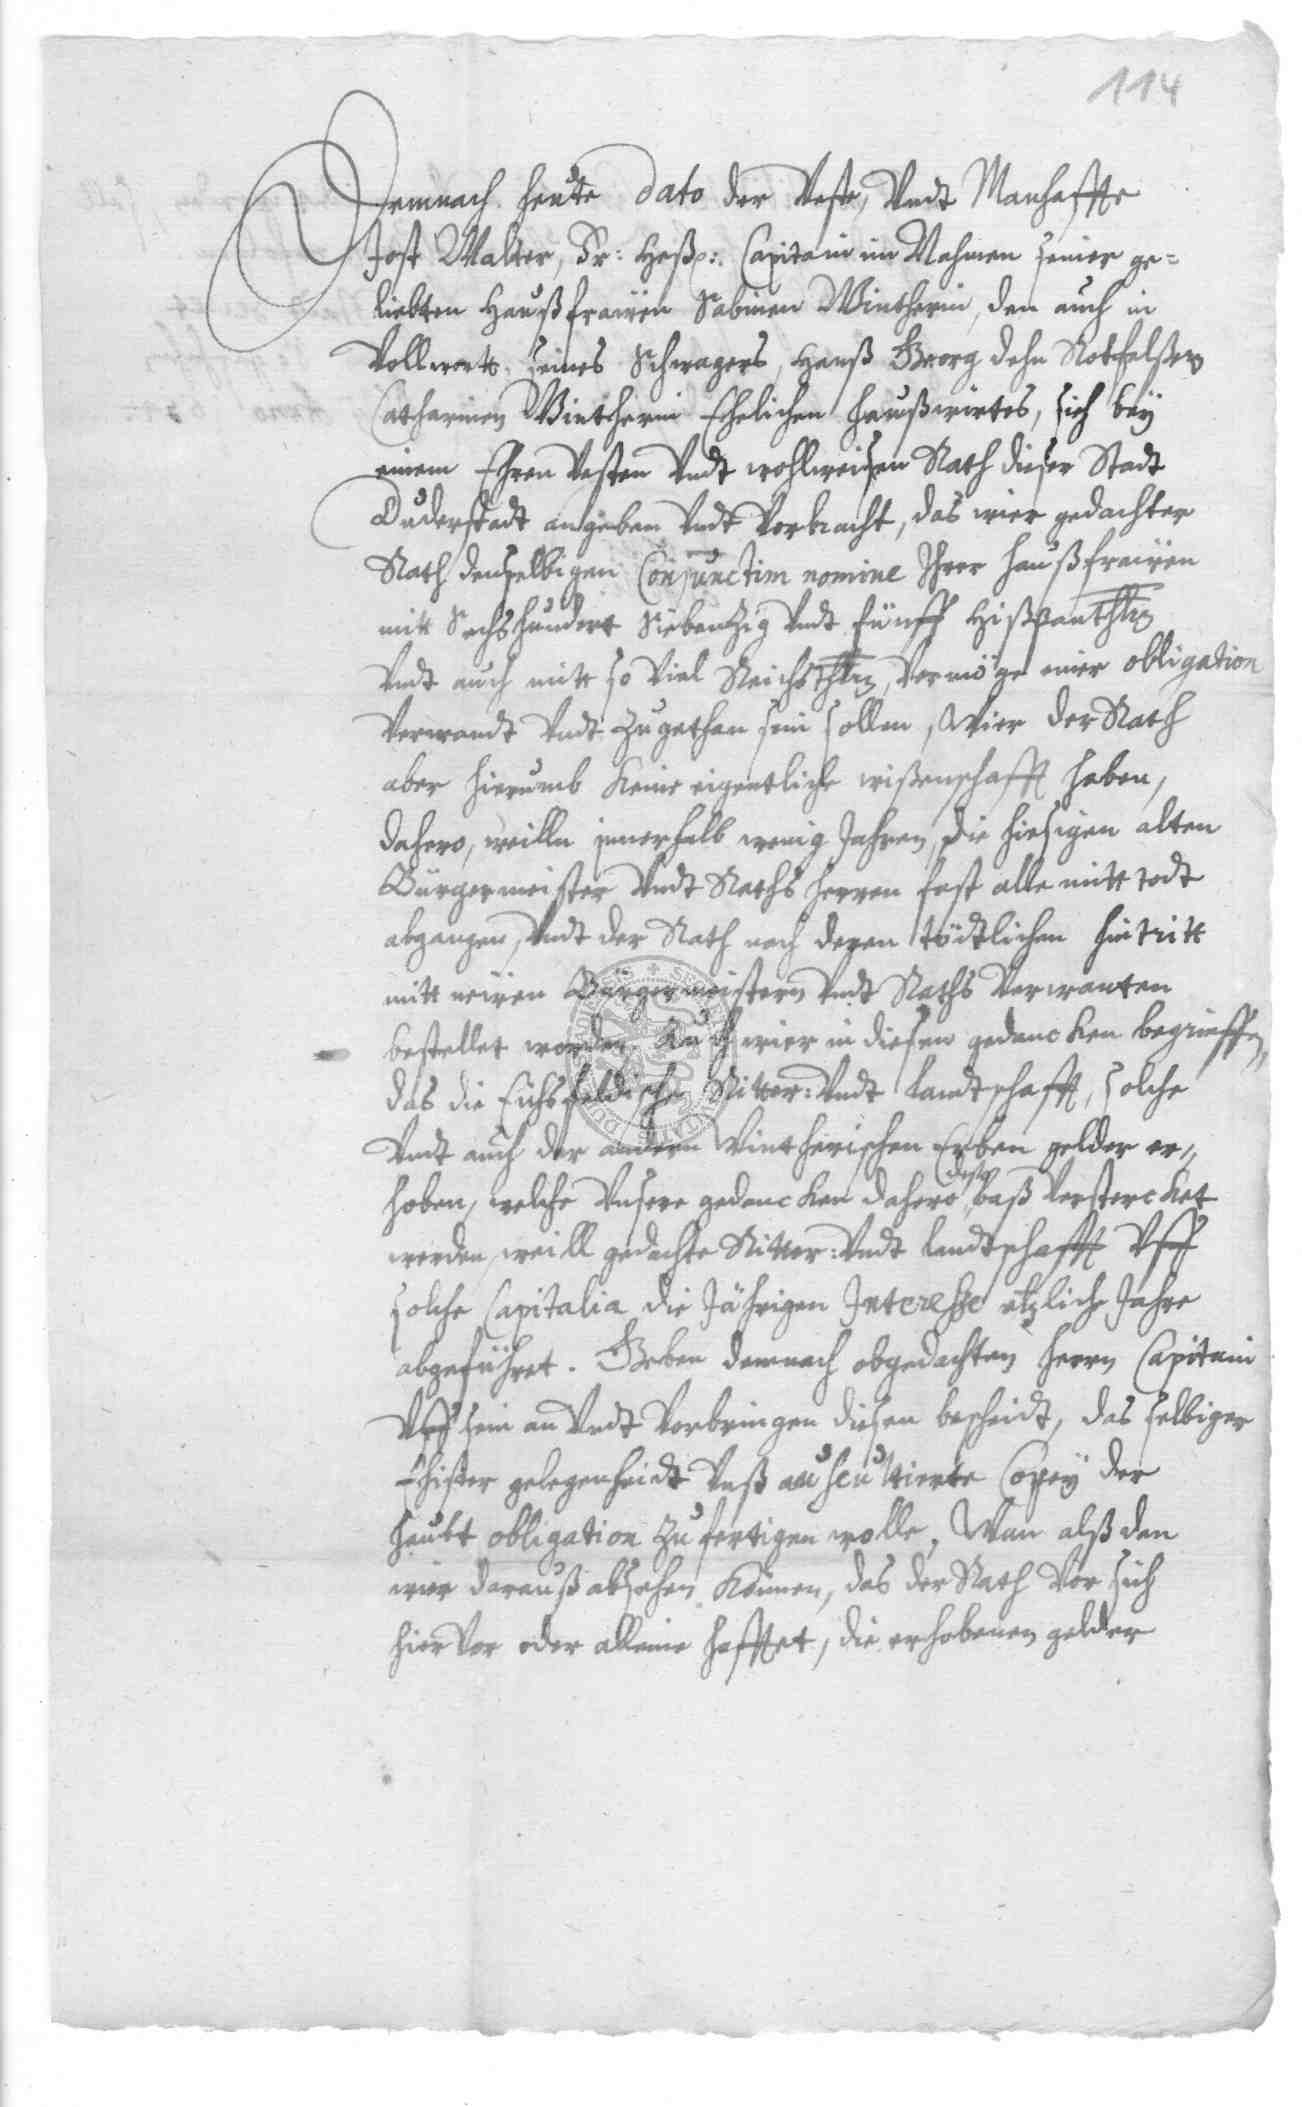 114
Demnach heute dato der Veste, Vndt Manhaffte
Jost Walter, Fr: Heß: Capitain im Nahmen seiner ge-
liebten Haußfrawen Sabinen Wintherin, den auch in
Vollmacht seines Schwagers, Hanß Georg
Catharinen Wintherin Ehelichen haußwirtes, sich beÿ
einem Ehren Vesten Vndt wohlweisen Rath dieser Stadt
Duderstadt angeben Vndt Vorbracht, das wier gedachter
Rath denselbigen Conjunctim nomine Ihrer haußfrawen
mitt Sechshundert Siebenzig Vndt fünff Hißpanthlrn
Vndt auch mitt so viel Reichsthlrn, Vermöge einer obligation
Verwandt Vndt Zugethan sein sollen, Wier der Rath
aber hierumb Keine eigentliche wißenschafft haben,
dahero, weilln innerhalb wenig Jahren, die hiesigen alten
Bürgermeister Vndt Raths herren fast alle mitt todt
abgangen, Vndt der Rath nach deren tödtlichen hintritt
mitt newen Bürgermeistern Vndt Raths Verwanten
bestellet worden, Auch wier in diesen gedancken begrieffen,
das die Eichsfeldische Ritter: Vndt landtschafft, solche
Vndt auch der andern Wintherischen Erben gelder er-
hoben, welche Vnsere gedancken dahero desto baß Verstercket
werden, weill gedachte Ritter: Vndt landtschafft Vff
solche Capitalia die Jährigen Interesse etzliche Jahre
abgeführet. Geben demnach obgedachten herrn Capitain
Vff sein an Vndt Vorbringen diesen bescheidt, das selbiger
Ehister gelegenheidt Vnß auscultierte Copeÿ der
haubt obligation Zufertigen wolle, Wan alß dan
wier darauß absehen Können, das der Rath Vor sich
hiervor oder alleine hafftet, die erhobenen gelder